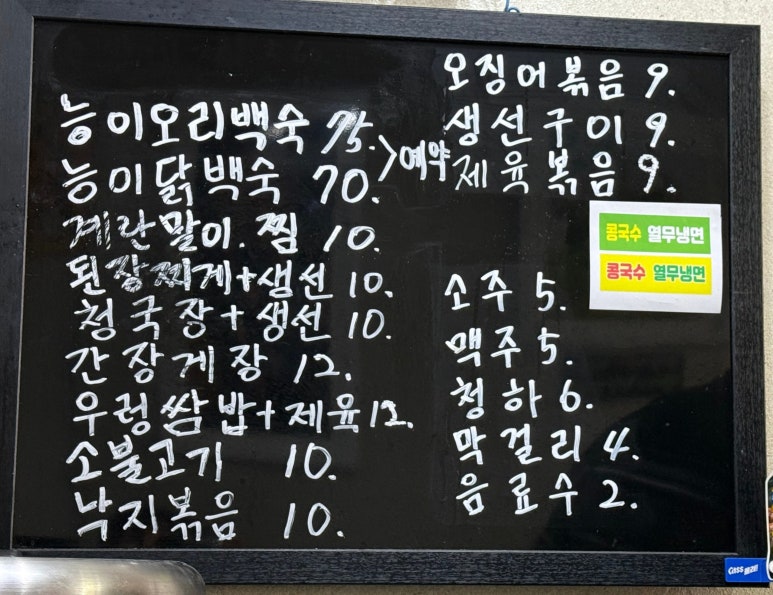 능이오리백숙 75.
능이닭백숙 70.
>예약
계란말이.찜 10.
된장찌게+생선 10.
청국장+생선 10.
간장게장 12.
우렁쌈밥+제육 12.
소불고기 10.
낙지볶음 10.
오징어볶음 9.
생선구이 9.
제육볶음 9.
콩국수 열무냉면
콩국수 열무냉면
소주 5.
맥주 5.
청하 6.
막걸리 4.
음료수 2.
Cass